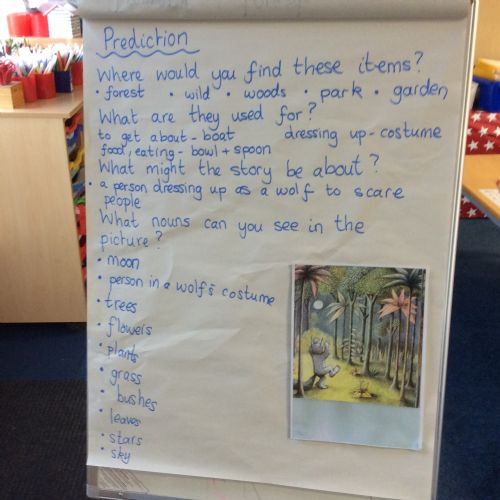 Prediction
Where would you find these items?
• forest • wild • woods • park • garden
What are they used for?
to get about - boat dressing up - costume
food, eating - bowl + spoon
What might the story be about?
• a person dressing up as a wolf to scare
people
What nouns can you see in the
picture?
• moon
• person in a wolf's costume
• trees
• flowers
• plants
• grass
• bushes
• leaves
• stars
• sky